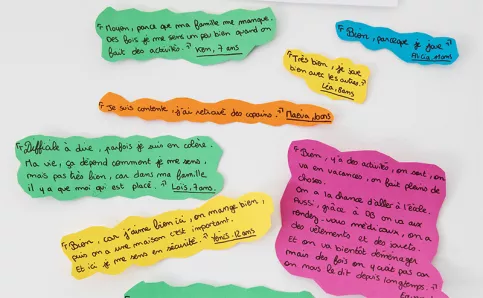 "Moyen, parce que ma famille me manque.
Des fois je me sens un peu bien quand on
fait des activités." Ken, 7 ans
"Bien, parceque je joue."
Alicia
"Très bien, je joue
bien avec les autres."
Léa, 8 ans
"Je suis contente, j'ai retrouvé des copains."
"Difficile à dire, parfois je suis en colère.
Ma vie, ça dépend comment je me sens,
mais pas très bien, car dans ma famille
il y a que moi qui est placé." Loïs, 7 ans.
"Bien, car j'aime bien ici, on mange bien,
puis on a une maison c'est important.
Et ici je me sens en sécurité." 12 ans
"Bien, y'a des activités, on sort, on
va en vacances, on fait pleins de
choses.
On a la chance d'aller à l'école.
Aussi, grâce à on va aux
rendez-vous médicaux, on a
des vêtements et des jouets.
Et on va bientôt déménager
mais des fois on y croit pas car
on nous le dit depuis longtemps."